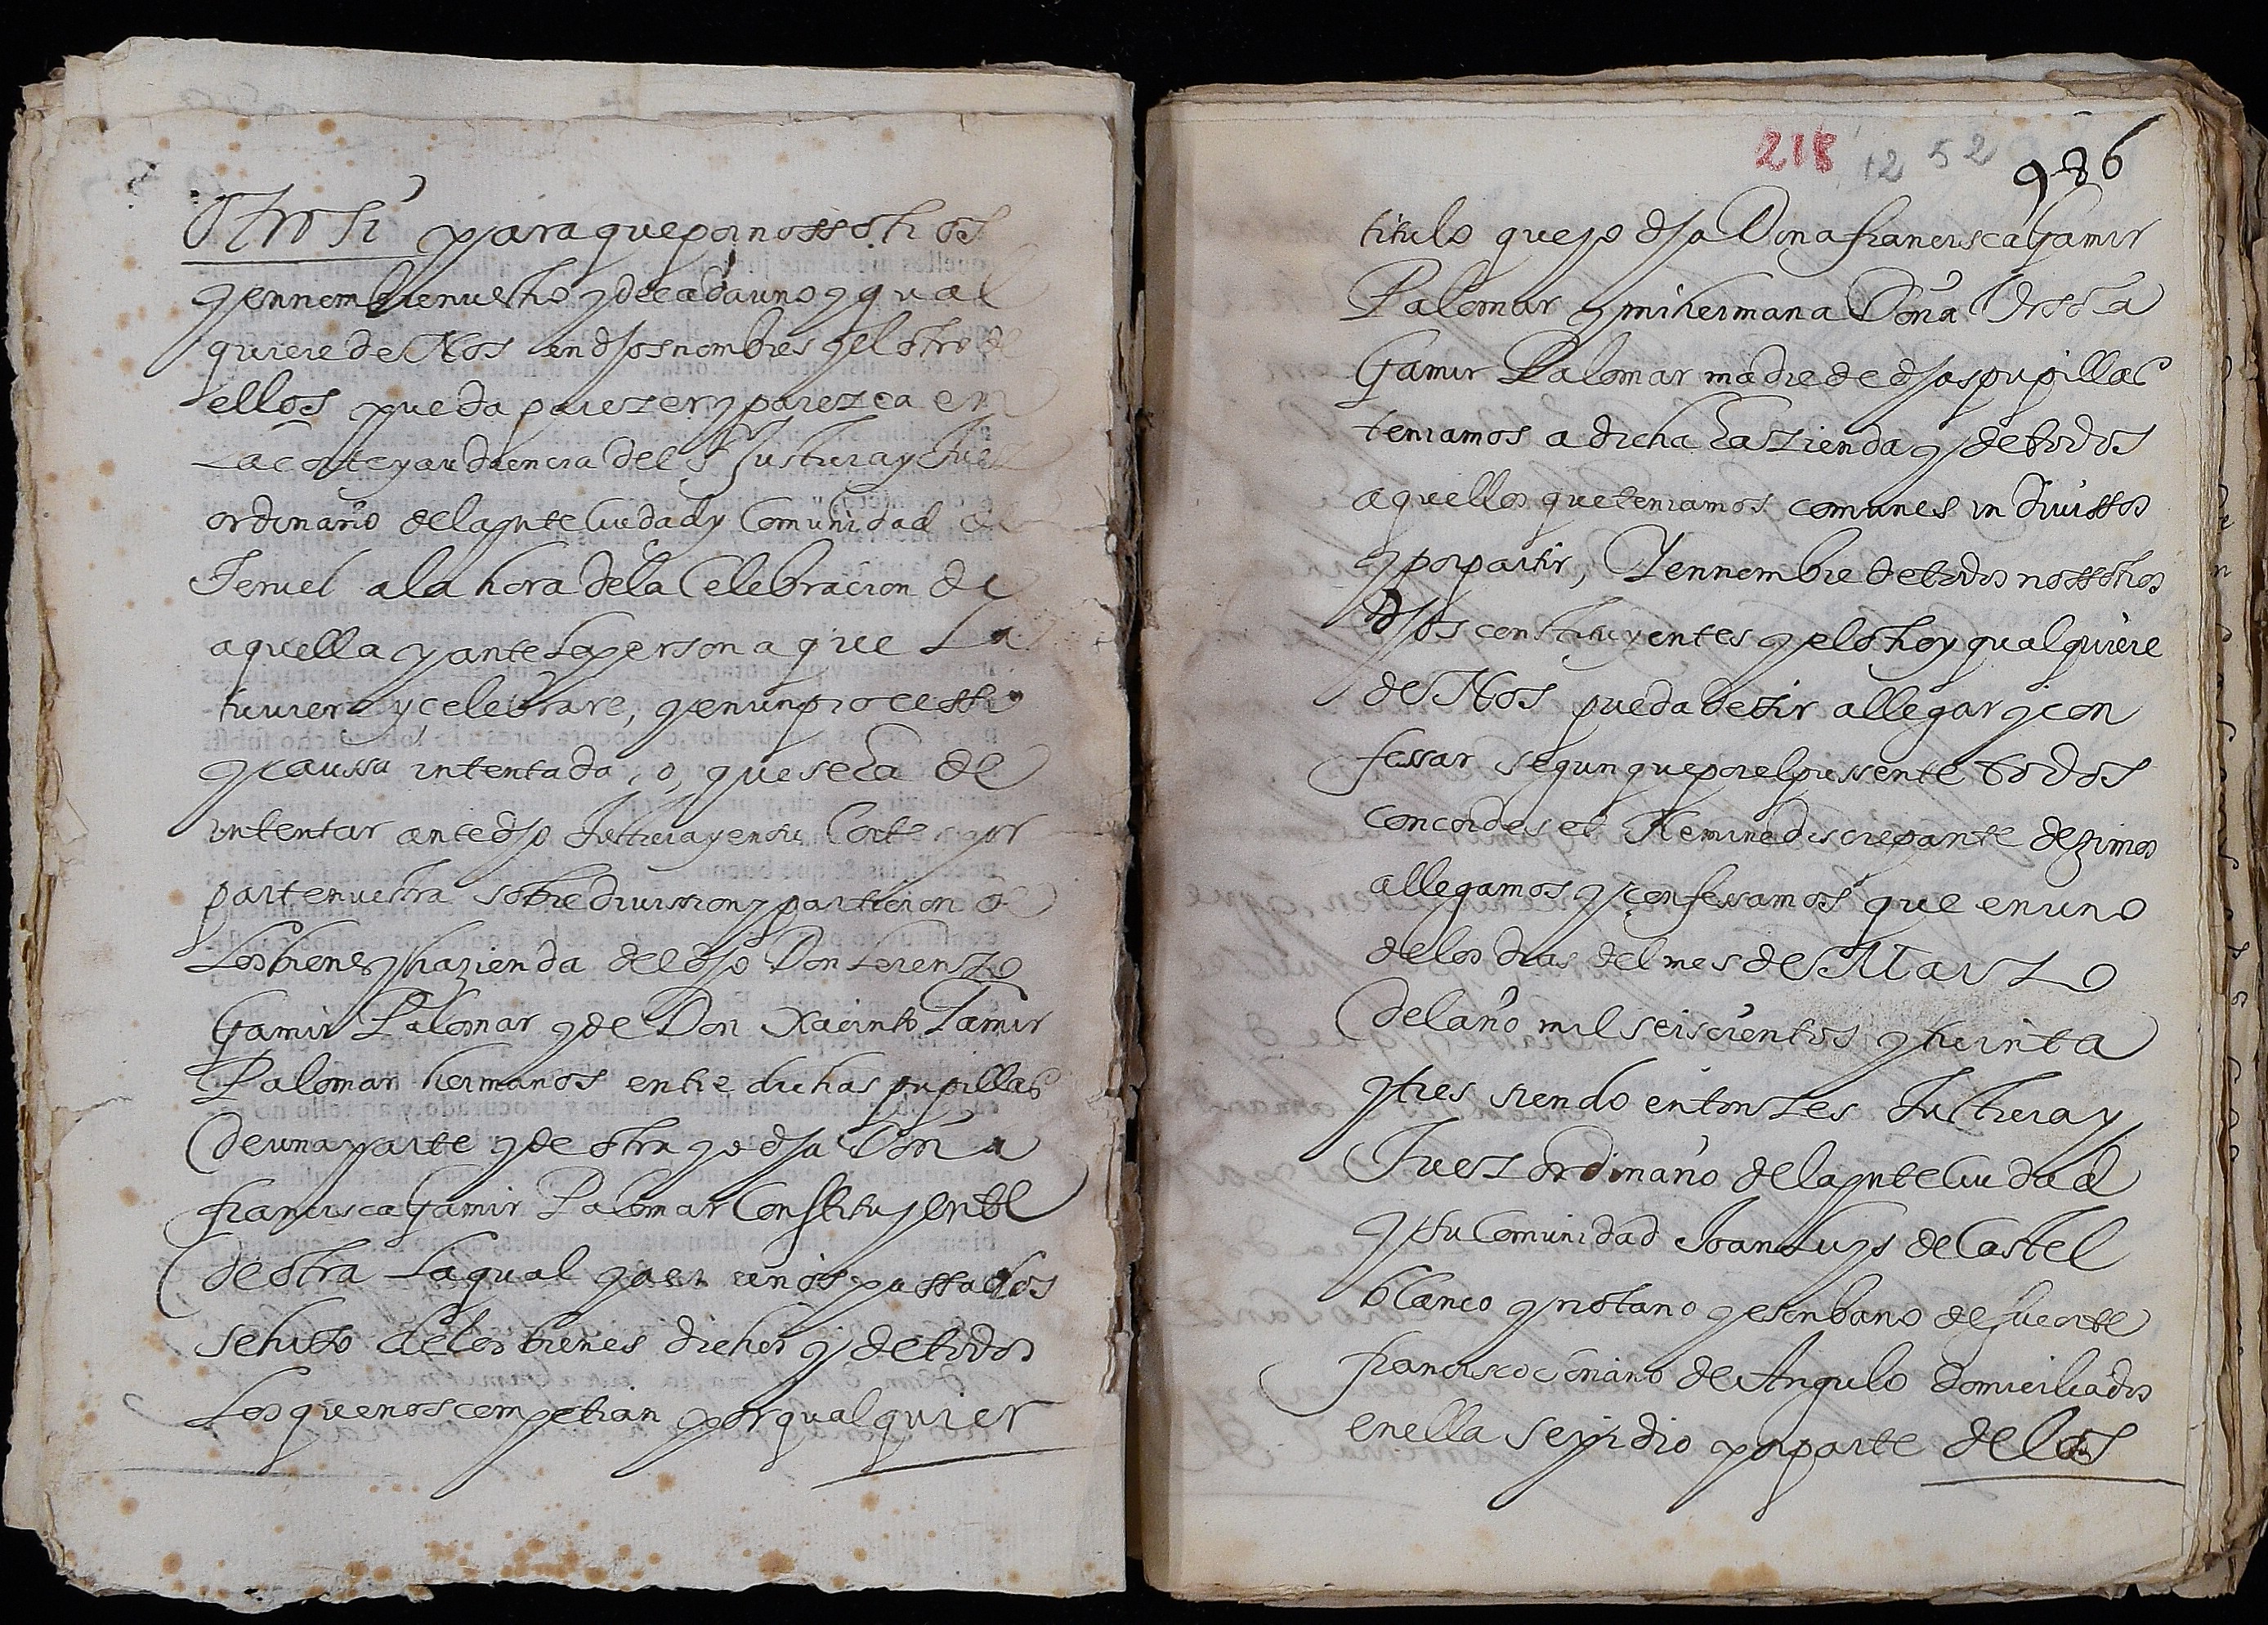 Otrosi para que por nossotros
y en nombre nuestro y de cada uno y qual
quiere de Nos en dhos nombres y el otro de
ellos pueda parezer y parezca en
La corte y audiencia del Sr Justicia y Juez
ordinario de la pnte Ciudad y Comunidad de
Teruel a la hora de la Celebracion de
aquella y ante la persona que La
tuviere y celebrare, y en un processo
y caussa intentada, o, que se ha de
intentar ante dho Justicia y en su Corte por
parte nuestra sobre divission y particion de
Los bienes y hazienda de el dho Don Lorenzo
Gamir Palomar y de Don Xacinto Gamir
Palomar hermanos entre dichas pupillas
de una parte y de otra yo dha Doña
francisca Gamir Palomar Constituyente
de otra La qual ya en años passados
se hizo de los bienes dichos y de todos
Los que nos competian por qualquier
218 12 52 986
titulo que yo dha Dona francisca Gamir
Palomar y mi hermana Doña Ursola
Gamir Palomar madre de dhas pupillas
teniamos a dicha hazienda y de todos
aquellos que teniamos comunes in divissos
y por partir, Y en nombre de todos nossotros
dhos constituyentes y el otro y qualquiere
de Nos pueda dezir allegar y con
fessar segun que por el pressente todos
concordes et Nemine discrepante dezimos
allegamos y confessamos que en uno
de los dias del mes de Marzo
del año mil seiscientos y treinta
y tres siendo entonzes Justicia y
Juez ordinario de la pnte Ciudad
y su Comunidad Joan Luys de Castel
blanco y notario y escribano de su corte
francisco de Angulo domiciliados
en ella se pidio por parte de los